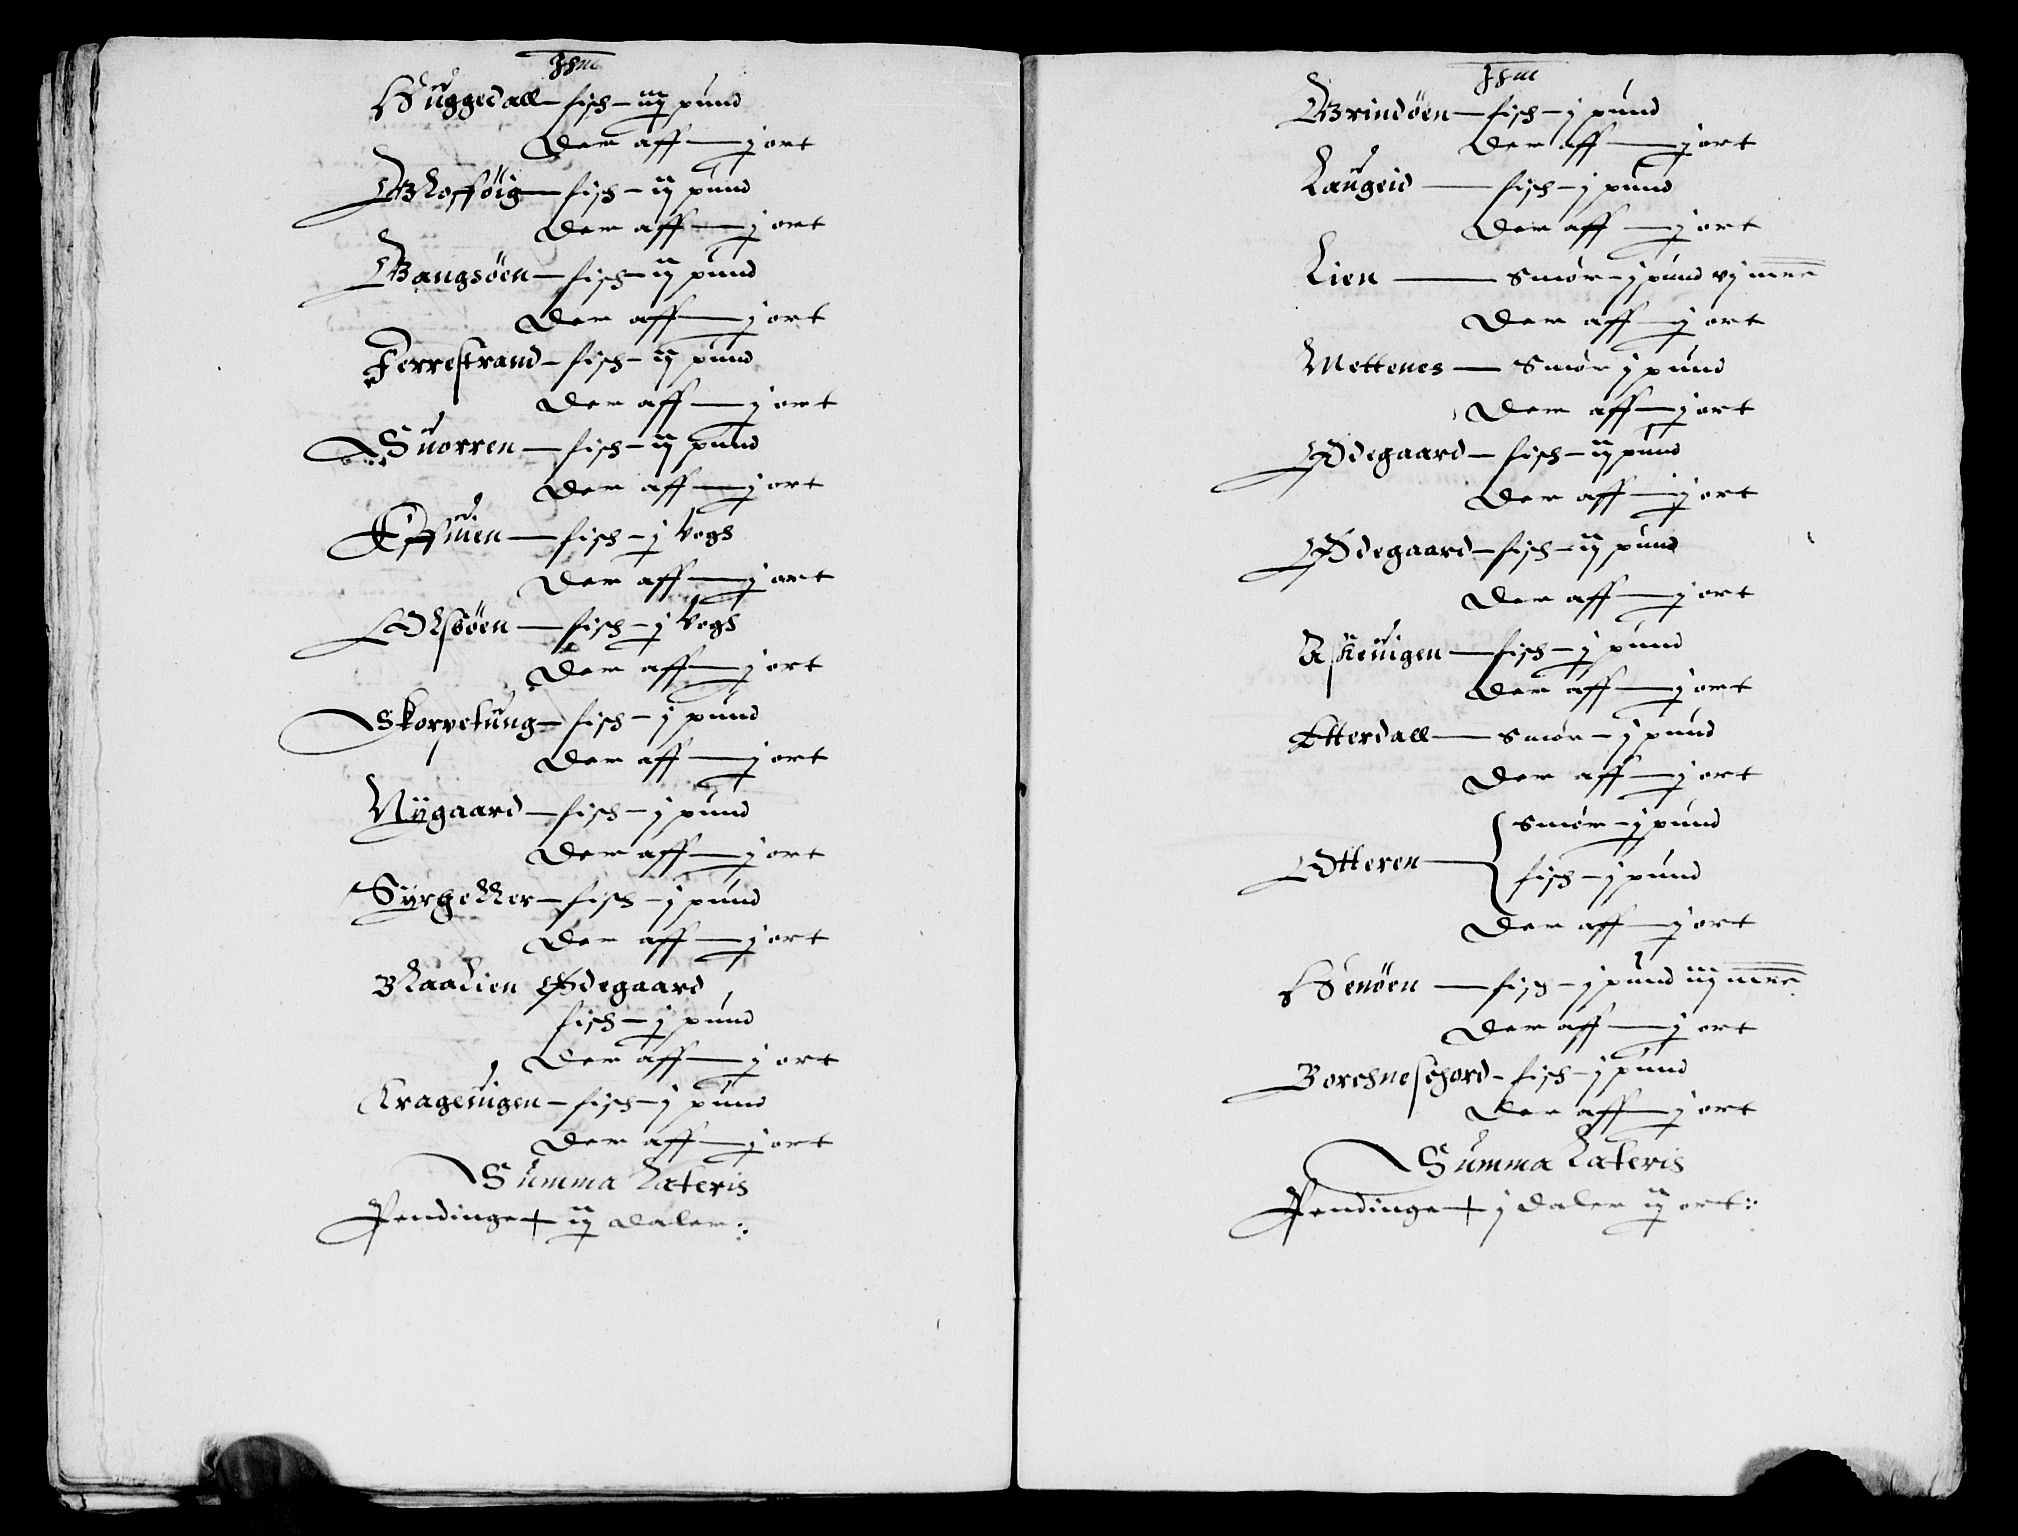 Ihm
Huggedall – fisch – iij pund
Der aff — j ort
Glossöig – fisch – ij pund
Der aff — j ort
Gangsöen – fisch – ij pund
Der aff — j ort
Ferrestrand – fisch – ij pund
Der aff — j ort
Suorren – fisch – ij pund
Der aff — j ort
– fisch – j Vogh
Der aff — j ort
Olsöen – fisch – j Vogh
Der aff — j ort
Skorpetung – fisch – j pund
Der aff — j ort
Nÿgaard – fisch – j pund
Der aff — j ort
Sÿrheller – fisch – j pund
Der aff — j ort
Blaalien Ødegaard
fisch – j pund
Der aff — j ort
Krageuigen – fisch – j pund
Der aff — j ort
Summa Lateris
Pendinge + ij daler
Ihm
Grindöen – fisch – j pund
Der aff — j ort
Laugeid – fisch – j pund
Der aff — j ort
Lien — Smör – j pund vj mrk
Der aff — j ort
Mettenes — Smör j pund
Der aff — j ort
Ødegaard – fisch – ij pund
Der aff — j ort
Ødegaard – fisch – ij pund
Der aff — j ort
Askeuigen – fisch – j pund
Der aff — j ort
Etterdall — Smör – j pund
Der aff — j ort
Smör – j pund
Otteren — fisch – j pund
Der aff — j ort
Henöen — fisch – j pund iij mrk
Der aff — j ort
Borchnefhord – fisch – j pund
Der aff — j ort
Summa Lateris
Pendinge + j daler ij ort